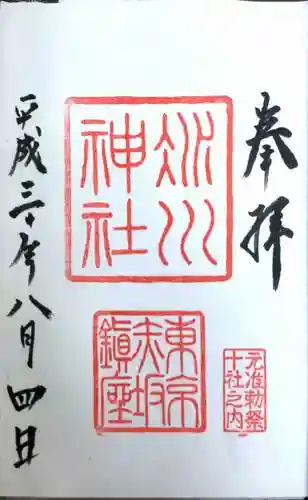 奉拝
氷川
神社
東京
赤坂
鎮座
元准勅祭
十社之内
平成三十年八月四日